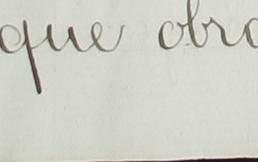 que obra